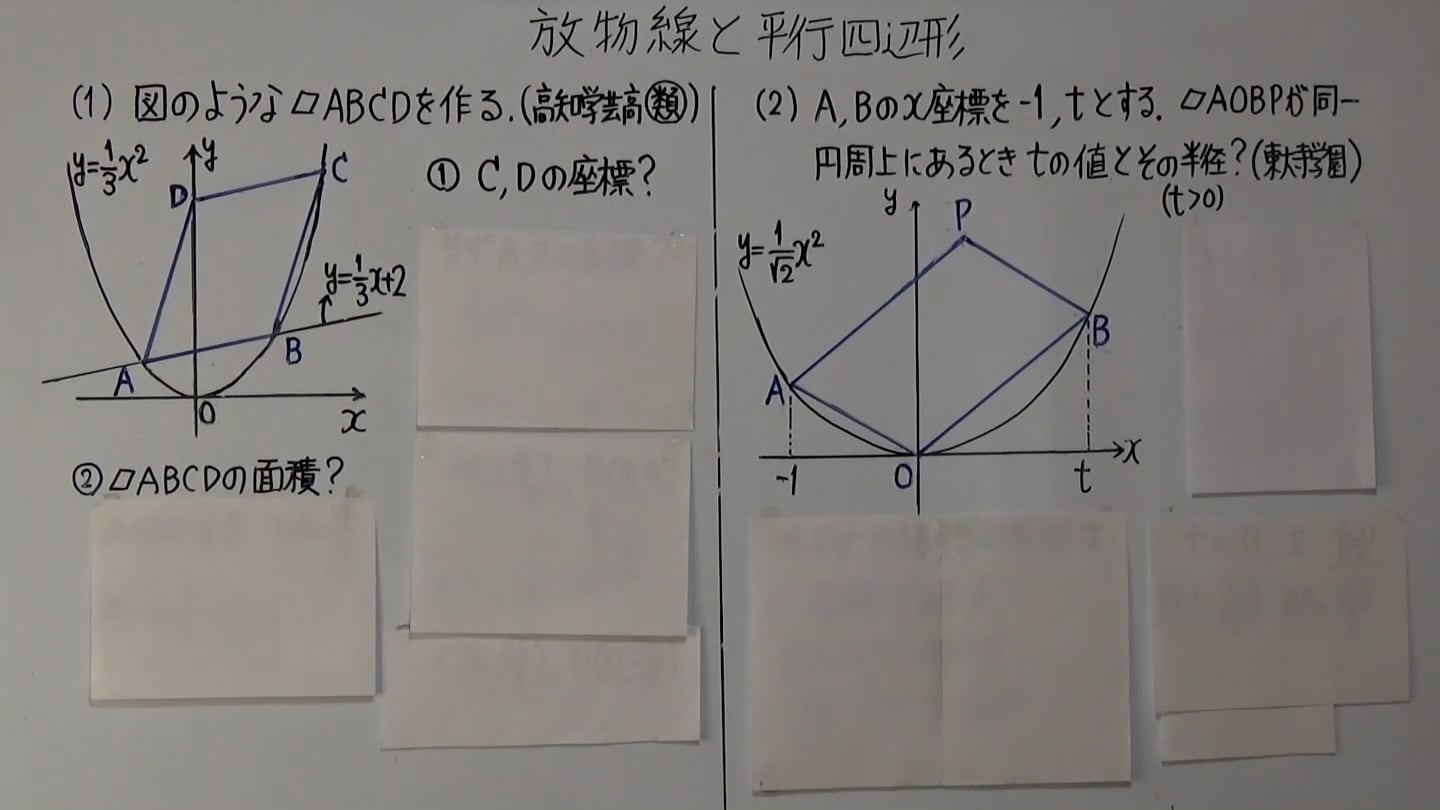 放物線と平行四辺形
(1) 図のような▱ABCDを作る.(高知学芸高㊞類)
y=1/3x²
y
C
D
① C,Dの座標?
y=1/3x+2
A
B
O
x
② ▱ABCDの面積?
(2) A,Bのx座標を-1,tとする. ▱AOBPが同一
円周上にあるときtの値とその半径?(東大寺学園)
(t>0)
y
P
y=1/√2x²
A
B
-1
O
t
x